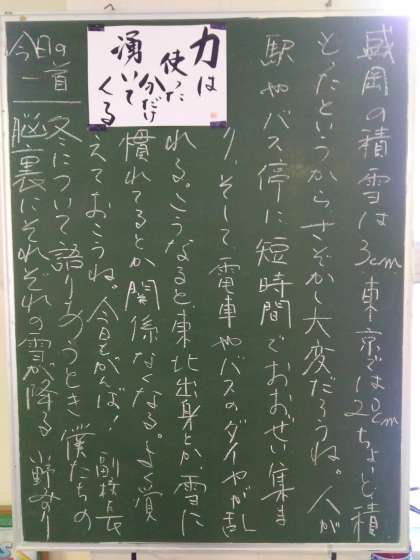 力は
使った
分だけ
湧いて
くる
盛岡の積雪は3cm。東京では20cmちょいと積
もったというからさぞかし大変だろうね。人が
駅やバス停に短時間でおおぜい集ま
り、そして電車やバスのダイヤが乱
れる。こうなると東北出身とか雪に
慣れてるとか関係なくなる。よく覚
えておこうね。今日もがんば! 副校長
今日の一首
冬について語りあうとき僕たちの
脳裏にそれぞれの雪が降る 小野みのり